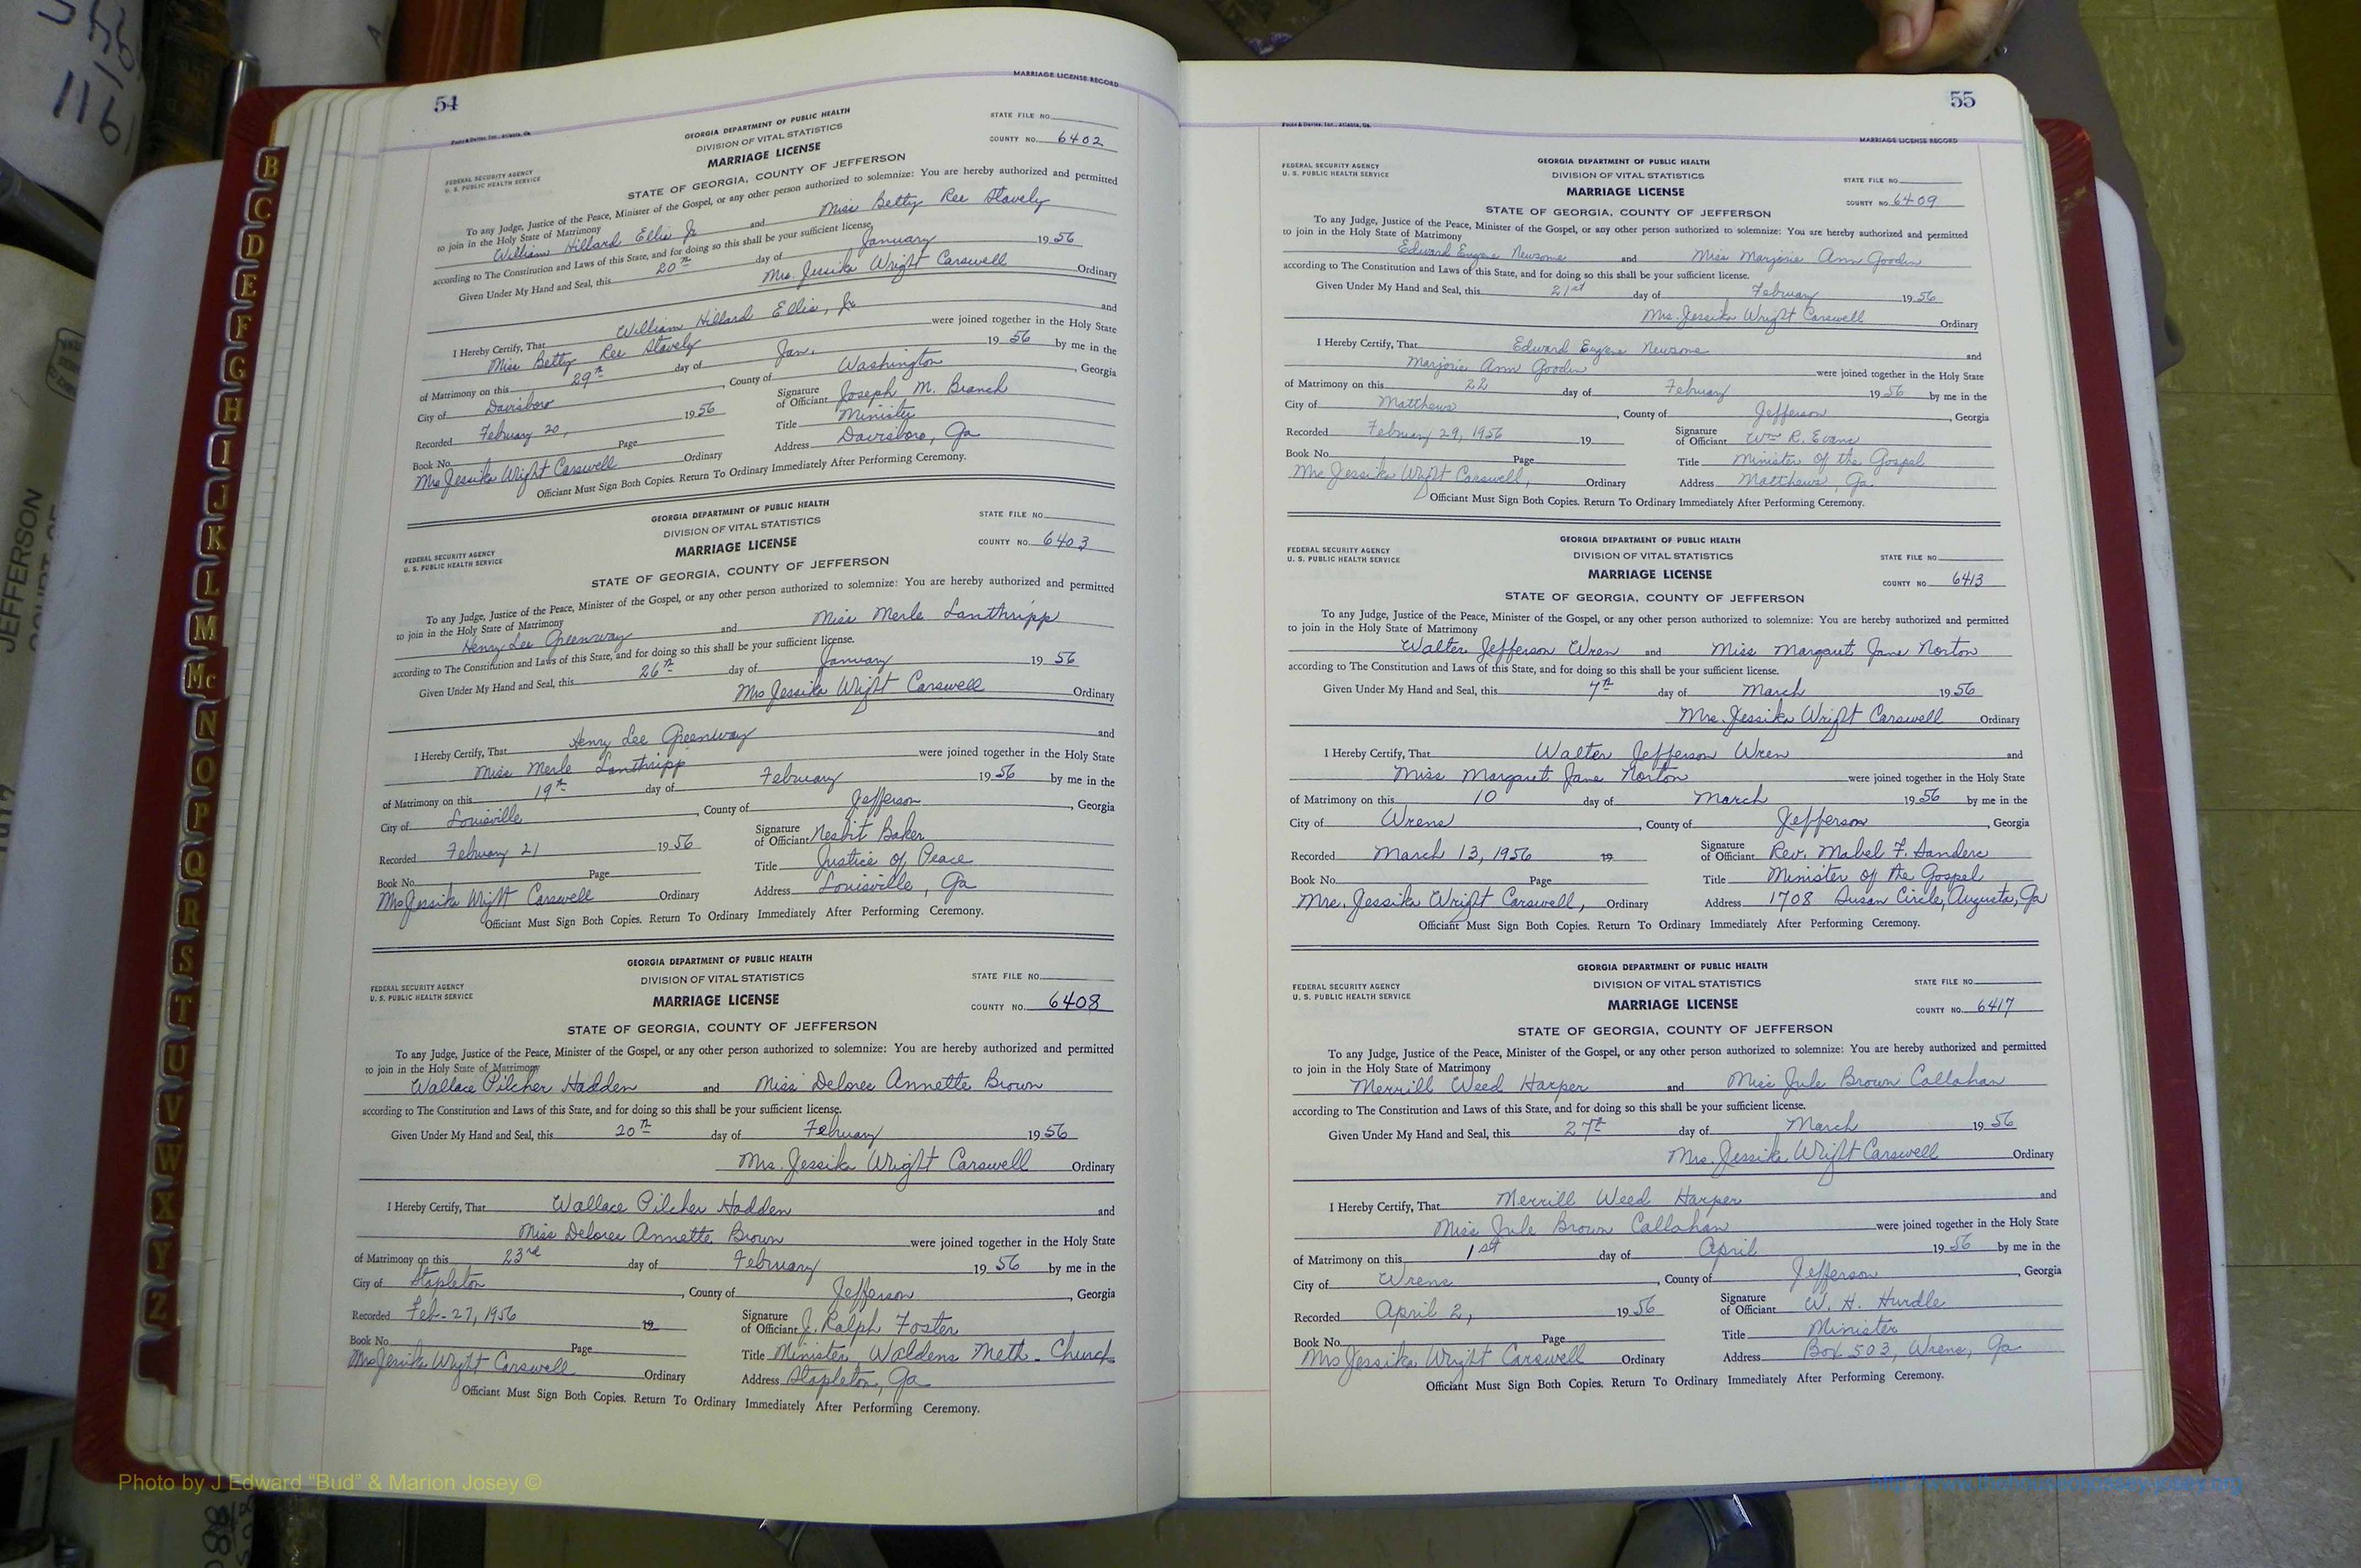 54
MARRIAGE LICENSE RECORD
GEORGIA DEPARTMENT OF PUBLIC HEALTH
DIVISION OF VITAL STATISTICS
MARRIAGE LICENSE
STATE FILE NO.
COUNTY NO. 6402
FEDERAL SECURITY AGENCY
U. S. PUBLIC HEALTH SERVICE
STATE OF GEORGIA, COUNTY OF JEFFERSON
To any Judge, Justice of the Peace, Minister of the Gospel, or any other person authorized to solemnize: You are hereby authorized and permitted
to join in the Holy State of Matrimony
William Hillard Ellis Jr and Miss Betty Ree Stavely
according to The Constitution and Laws of this State, and for doing so this shall be your sufficient license.
Given Under My Hand and Seal, this 20th day of January 1956
Mrs. Jessika Wright Carswell Ordinary
I Hereby Certify, That William Hillard Ellis, Jr and
Miss Betty Ree Stavely were joined together in the Holy State
of Matrimony on this 29th day of Jan. 1956 by me in the
City of Davisboro, County of Washington, Georgia
Recorded February 20, 1956 Signature of Officiant Joseph M. Branch
Title Minister
Book No. Page Address Davisboro, Ga
Mrs Jessika Wright Carswell Ordinary
Officiant Must Sign Both Copies. Return To Ordinary Immediately After Performing Ceremony.
GEORGIA DEPARTMENT OF PUBLIC HEALTH
DIVISION OF VITAL STATISTICS
MARRIAGE LICENSE
STATE FILE NO.
COUNTY NO. 6403
FEDERAL SECURITY AGENCY
U. S. PUBLIC HEALTH SERVICE
STATE OF GEORGIA, COUNTY OF JEFFERSON
To any Judge, Justice of the Peace, Minister of the Gospel, or any other person authorized to solemnize: You are hereby authorized and permitted
to join in the Holy State of Matrimony
Henry Lee Greenway and Miss Merle Lanthripp
according to The Constitution and Laws of this State, and for doing so this shall be your sufficient license.
Given Under My Hand and Seal, this 26th day of January 1956
Mrs Jessika Wright Carswell Ordinary
I Hereby Certify, That Henry Lee Greenway and
Miss Merle Lanthripp were joined together in the Holy State
of Matrimony on this 19th day of February 1956 by me in the
City of Louisville, County of Jefferson, Georgia
Recorded February 21 1956 Signature of Officiant Nesbit Baker
Title Justice of Peace
Book No. Page Address Louisville, Ga
Mrs Jessika Wright Carswell Ordinary
Officiant Must Sign Both Copies. Return To Ordinary Immediately After Performing Ceremony.
GEORGIA DEPARTMENT OF PUBLIC HEALTH
DIVISION OF VITAL STATISTICS
MARRIAGE LICENSE
STATE FILE NO.
COUNTY NO. 6408
FEDERAL SECURITY AGENCY
U. S. PUBLIC HEALTH SERVICE
STATE OF GEORGIA, COUNTY OF JEFFERSON
To any Judge, Justice of the Peace, Minister of the Gospel, or any other person authorized to solemnize: You are hereby authorized and permitted
to join in the Holy State of Matrimony
Wallace Pilcher Hadden and Miss Delores Annette Brown
according to The Constitution and Laws of this State, and for doing so this shall be your sufficient license.
Given Under My Hand and Seal, this 20th day of February 1956
Mrs. Jessika Wright Carswell Ordinary
I Hereby Certify, That Wallace Pilcher Hadden and
Miss Delores Annette Brown were joined together in the Holy State
of Matrimony on this 23rd day of February 1956 by me in the
City of Stapleton, County of Jefferson, Georgia
Recorded Feb. 27, 1956 19 Signature of Officiant J. Ralph Foster
Book No. Page Title Minister Waldens Meth. Church
Mrs Jessika Wright Carswell Ordinary Address Stapleton, Ga
Officiant Must Sign Both Copies. Return To Ordinary Immediately After Performing Ceremony.
55
MARRIAGE LICENSE RECORD
FEDERAL SECURITY AGENCY
U. S. PUBLIC HEALTH SERVICE
GEORGIA DEPARTMENT OF PUBLIC HEALTH
DIVISION OF VITAL STATISTICS
MARRIAGE LICENSE
STATE FILE NO.
COUNTY NO. 6409
STATE OF GEORGIA, COUNTY OF JEFFERSON
To any Judge, Justice of the Peace, Minister of the Gospel, or any other person authorized to solemnize: You are hereby authorized and permitted
to join in the Holy State of Matrimony
Edward Eugene Newsome and Miss Marjorie Ann Gooden
according to The Constitution and Laws of this State, and for doing so this shall be your sufficient license.
Given Under My Hand and Seal, this 21st day of February 1956
Mrs. Jessika Wright Carswell Ordinary
I Hereby Certify, That Edward Eugene Newsome and
Marjorie Ann Gooden were joined together in the Holy State
of Matrimony on this 22 day of February 1956 by me in the
City of Matthews, County of Jefferson, Georgia
Recorded February 29, 1956 19 Signature of Officiant Wm R. Evans
Book No. Page Title Minister of the Gospel
Mrs Jessika Wright Carswell, Ordinary Address Matthews, Ga.
Officiant Must Sign Both Copies. Return To Ordinary Immediately After Performing Ceremony.
FEDERAL SECURITY AGENCY
U. S. PUBLIC HEALTH SERVICE
GEORGIA DEPARTMENT OF PUBLIC HEALTH
DIVISION OF VITAL STATISTICS
MARRIAGE LICENSE
STATE FILE NO
COUNTY NO. 6413
STATE OF GEORGIA, COUNTY OF JEFFERSON
To any Judge, Justice of the Peace, Minister of the Gospel, or any other person authorized to solemnize: You are hereby authorized and permitted
to join in the Holy State of Matrimony
Walter Jefferson Wren and Miss Margaret Jane Norton
according to The Constitution and Laws of this State, and for doing so this shall be your sufficient license.
Given Under My Hand and Seal, this 7th day of March 1956
Mrs. Jessika Wright Carswell Ordinary
I Hereby Certify, That Walter Jefferson Wren and
Miss Margaret Jane Norton were joined together in the Holy State
of Matrimony on this 10 day of March 1956 by me in the
City of Wrens, County of Jefferson, Georgia
Recorded March 13, 1956 19 Signature of Officiant Rev. Mabel F. Sanders
Book No. Page Title Minister of the Gospel
Mrs. Jessika Wright Carswell, Ordinary Address 1708 Susan Circle, Augusta, Ga
Officiant Must Sign Both Copies. Return To Ordinary Immediately After Performing Ceremony.
GEORGIA DEPARTMENT OF PUBLIC HEALTH
DIVISION OF VITAL STATISTICS
MARRIAGE LICENSE
FEDERAL SECURITY AGENCY
U. S. PUBLIC HEALTH SERVICE
STATE FILE NO.
COUNTY NO. 6417
STATE OF GEORGIA, COUNTY OF JEFFERSON
To any Judge, Justice of the Peace, Minister of the Gospel, or any other person authorized to solemnize: You are hereby authorized and permitted
to join in the Holy State of Matrimony
Merrill Weed Harper and Miss Jule Brown Callahan
according to The Constitution and Laws of this State, and for doing so this shall be your sufficient license.
Given Under My Hand and Seal, this 27th day of March 1956
Mrs. Jessika Wright Carswell Ordinary
I Hereby Certify, That Merrill Weed Harper and
Miss Jule Brown Callahan were joined together in the Holy State
of Matrimony on this 1st day of April 1956 by me in the
City of Wrens, County of Jefferson, Georgia
Recorded April 2, 1956 Signature of Officiant W. H. Hurdle
Book No. Page Title Minister
Mrs Jessika Wright Carswell Ordinary Address Box 503, Wrens, Ga
Officiant Must Sign Both Copies. Return To Ordinary Immediately After Performing Ceremony.
B
C
D
E
F
G
H
I
J
K
L
M
Mc
N
O
P
Q
R
S
T
U
V
W
X
Y
Z
JEFFERSON
Photo by J Edward "Bud" & Marion Josey ©